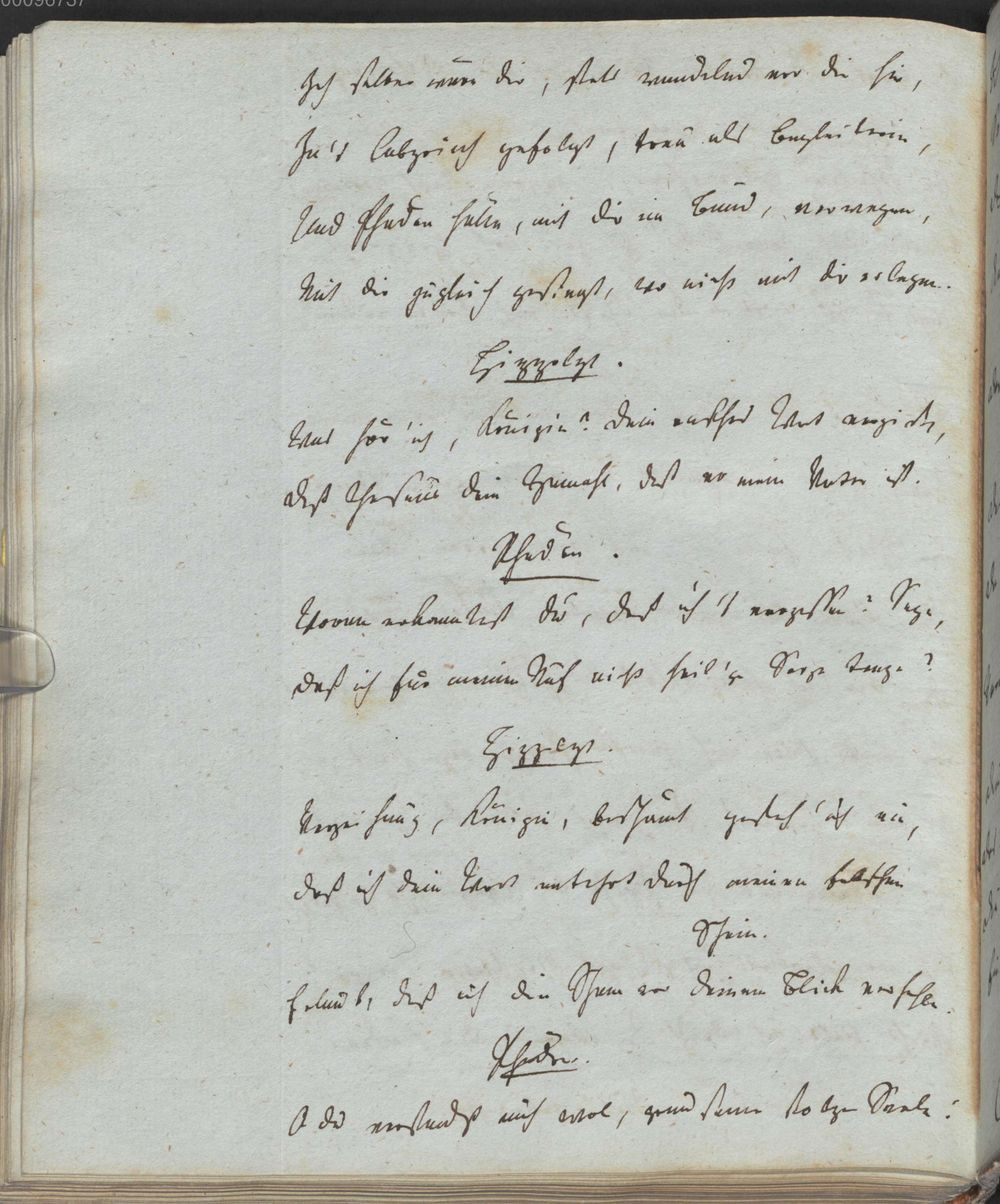 00096737
Ich selber wäre dir, stets wandelnd vor dir hin,
In's Labyrinth gefolgt, treu als Begleiterin,
Und Phädra hätte, mit dir im Bund, verwegen,
Mit dir zugleich gesiegt, wo nicht mit dir erlegen.
Hippolyt.
Was hör' ich, Königin? Dein Wort vergißt,
Daß Theseus dein Gemahl, daß er mein Vater ist.
Phädra.
Woran erkanntest du, daß ich's vergessen? Sage,
Daß ich für meinen Ruf nicht heil'ge Sorge trage?
Hippolyt.
Verzeihung, Königin, beschämt gesteh' ich ein,
Daß ich dein Wort entehrt durch meinen falschen
Schein.
Erlaub, daß ich die Scham vor deinem Blick verhehle.
Phädra.
O du verstandst mich wol, grausame stolze Seele!